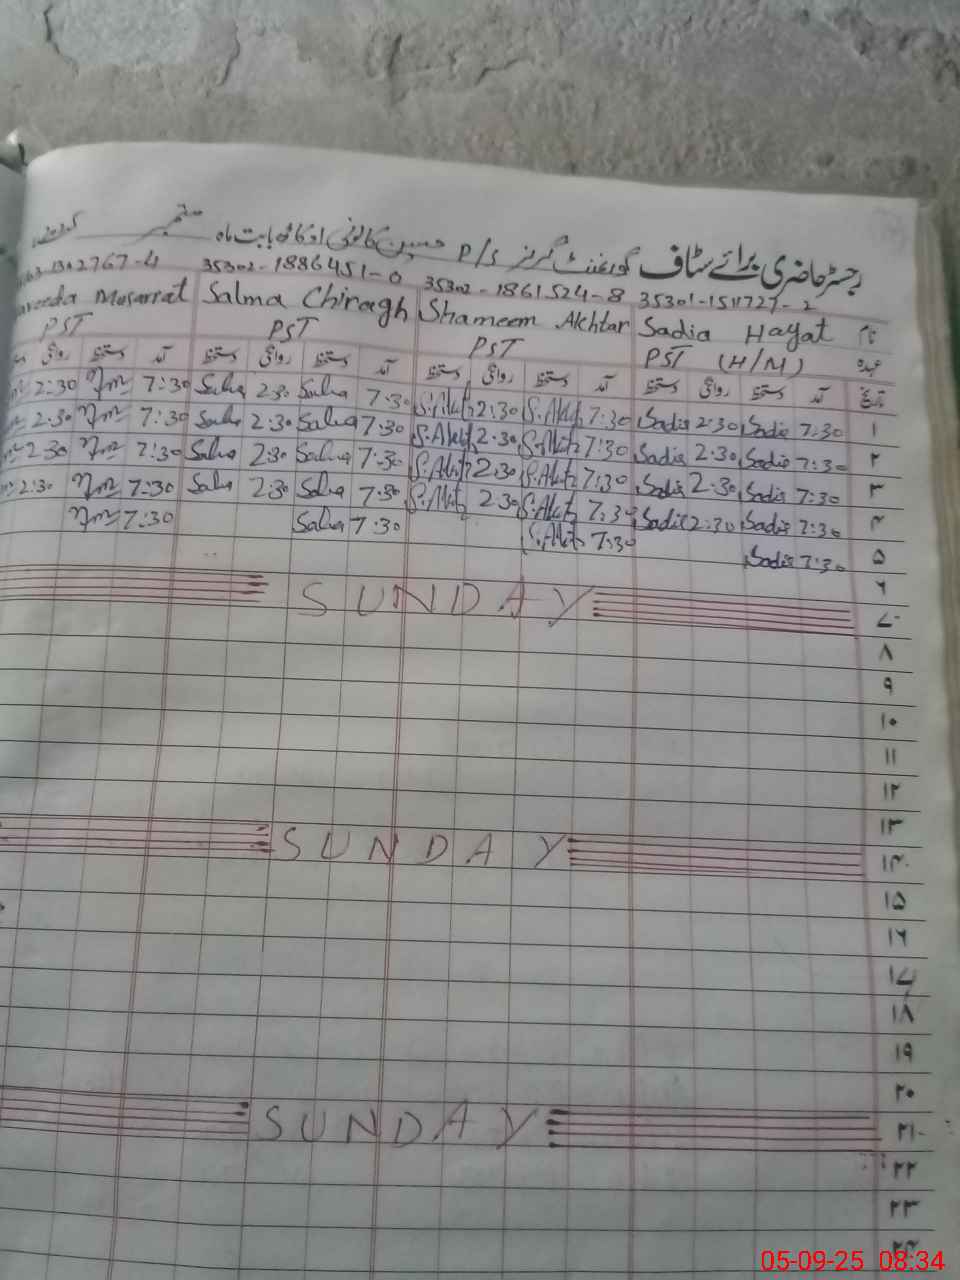 رجسٹر حاضری برائے سٹاف گورنمنٹ گرلز P/S حسین کالونی اوکاڑہ بابت ماہ ستمبر
35301-1511727-2 35302-1861524-8 35302-1886451-0 1302767-4
نام Sadia Hayat Shameem Akhtar Salma Chiragh Musarrat
عہدہ PST (H/M) PST PST PST
تاریخ آمد دستخط روانگی دستخط آمد دستخط روانگی دستخط آمد دستخط روانگی دستخط آمد دستخط روانگی
۱ 7:30 Sadia 2:30 Sadia 7:30 S.Akhtr 2:30 S.Akhtr 7:30 Salma 2:30 Salma 7:30 Nm 2:30
۲ 7:30 Sadia 2:30 Sadia 7:30 S.Akhtr 2:30 S.Akhtr 7:30 Salma 2:30 Salma 7:30 Nm 2:30
۳ 7:30 Sadia 2:30 Sadia 7:30 S.Akhtr 2:30 S.Akhtr 7:30 Salma 2:30 Salma 7:30 Nm 2:30
۴ 7:30 Sadia 2:30 Sadia 7:30 S.Akhtr 2:30 S.Akhtr 7:30 Salma 2:30 Salma 7:30 Nm 2:30
۵ 7:30 Sadia 7:30 S.Akhtr 7:30 Salma 7:30 Nm
۶
۷ SUNDAY
۸
۹
۱۰
۱۱
۱۲
۱۳
۱۴ SUNDAY
۱۵
۱۶
۱۷
۱۸
۱۹
۲۰
۲۱ SUNDAY
۲۲
۲۳
۲۴
05-09-25 08:34